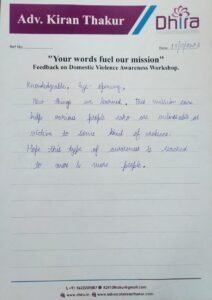 Adv. Kiran Thakur
Dhira
Ref No.
Date:
"Your words fuel our mission"
Feedback on Domestic Violence Awareness Workshop.
Knowledgeable. Eye-opening.
New things we learned. This mission can
help various people who are vulnerable as
victim to some kind of violence.
Hope this type of awareness is reached
to more & more people.
www.dhira.in www.advocatekiranthakur.com